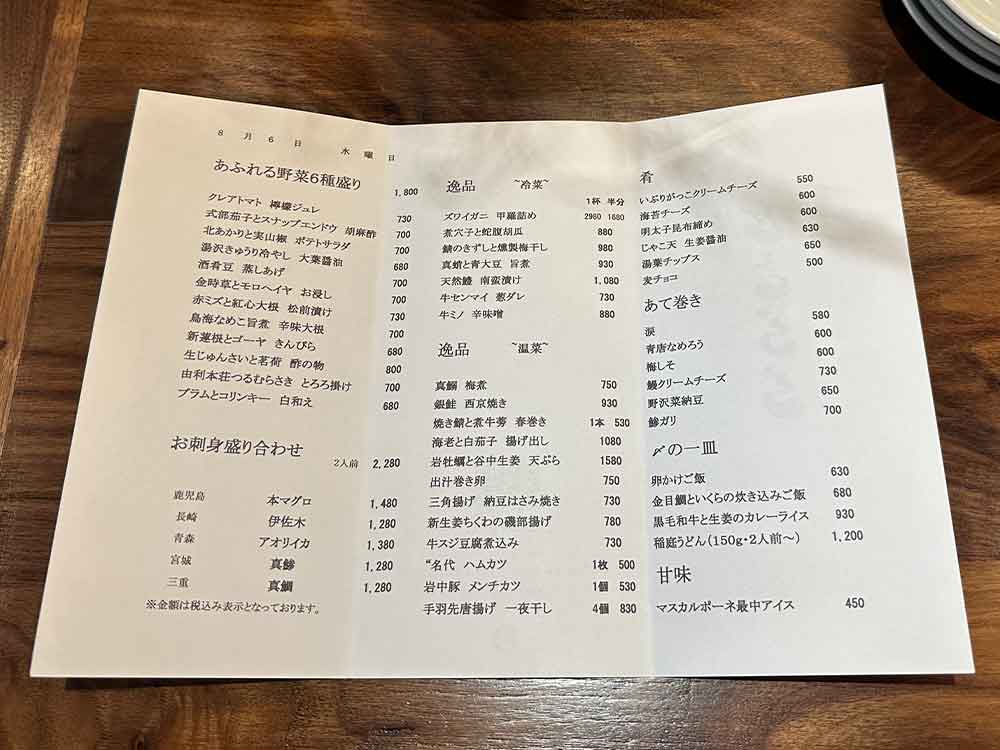 8月6日 水曜日
あふれる野菜6種盛り 1,800
クレアトマト 檸檬ジュレ 730
式部茄子とスナップエンドウ 胡麻酢 700
北あかりと実山椒 ポテトサラダ 700
湯沢きゅうり冷やし 大葉醤油 680
酒肴豆 蒸しあげ 700
金時草とモロヘイヤ お浸し 700
赤ミズと紅心大根 松前漬け 730
鳥海なめこ旨煮 辛味大根 700
新蓮根とゴーヤ きんぴら 680
生じゅんさいと茗荷 酢の物 800
由利本荘つるむらさき とろろ掛け 700
プラムとコリンキー 白和え 680
お刺身盛り合わせ
2人前 2,280
鹿児島 本マグロ 1,480
長崎 伊佐木 1,280
青森 アオリイカ 1,380
宮城 真鯵 1,280
三重 真鯛 1,280
※金額は税込み表示となっております。
逸品 ~冷菜~
1杯 半分
ズワイガニ 甲羅詰め 2980 1680
煮穴子と蛇腹胡瓜 880
鯖のきずしと燻製梅干し 980
真蛸と青大豆 旨煮 930
天然鱧 南蛮漬け 1,080
牛センマイ 葱ダレ 730
牛ミノ 辛味噌 880
逸品 ~温菜~
真鯛 梅煮 750
銀鮭 西京焼き 930
焼き鯖と煮牛蒡 春巻き 1本 530
海老と白茄子 揚げ出し 1080
岩牡蠣と谷中生姜 天ぷら 1580
出汁巻き卵 750
三角揚げ 納豆はさみ焼き 730
新生姜ちくわの磯部揚げ 780
牛スジ豆腐煮込み 730
“名代 ハムカツ 1枚 500
岩中豚 メンチカツ 1個 530
手羽先唐揚げ 一夜干し 4個 830
肴
いぶりがっこクリームチーズ 550
海苔チーズ 600
明太子昆布締め 600
じゃこ天 生姜醤油 630
湯葉チップス 650
麦チョコ 500
あて巻き
涙 580
青唐なめろう 600
梅しそ 600
鰻クリームチーズ 730
野沢菜納豆 650
鯵ガリ 700
〆の一皿
卵かけご飯 630
金目鯛といくらの炊き込みご飯 680
黒毛和牛と生姜のカレーライス 930
稲庭うどん(150g・2人前~) 1,200
甘味
マスカルポーネ最中アイス 450